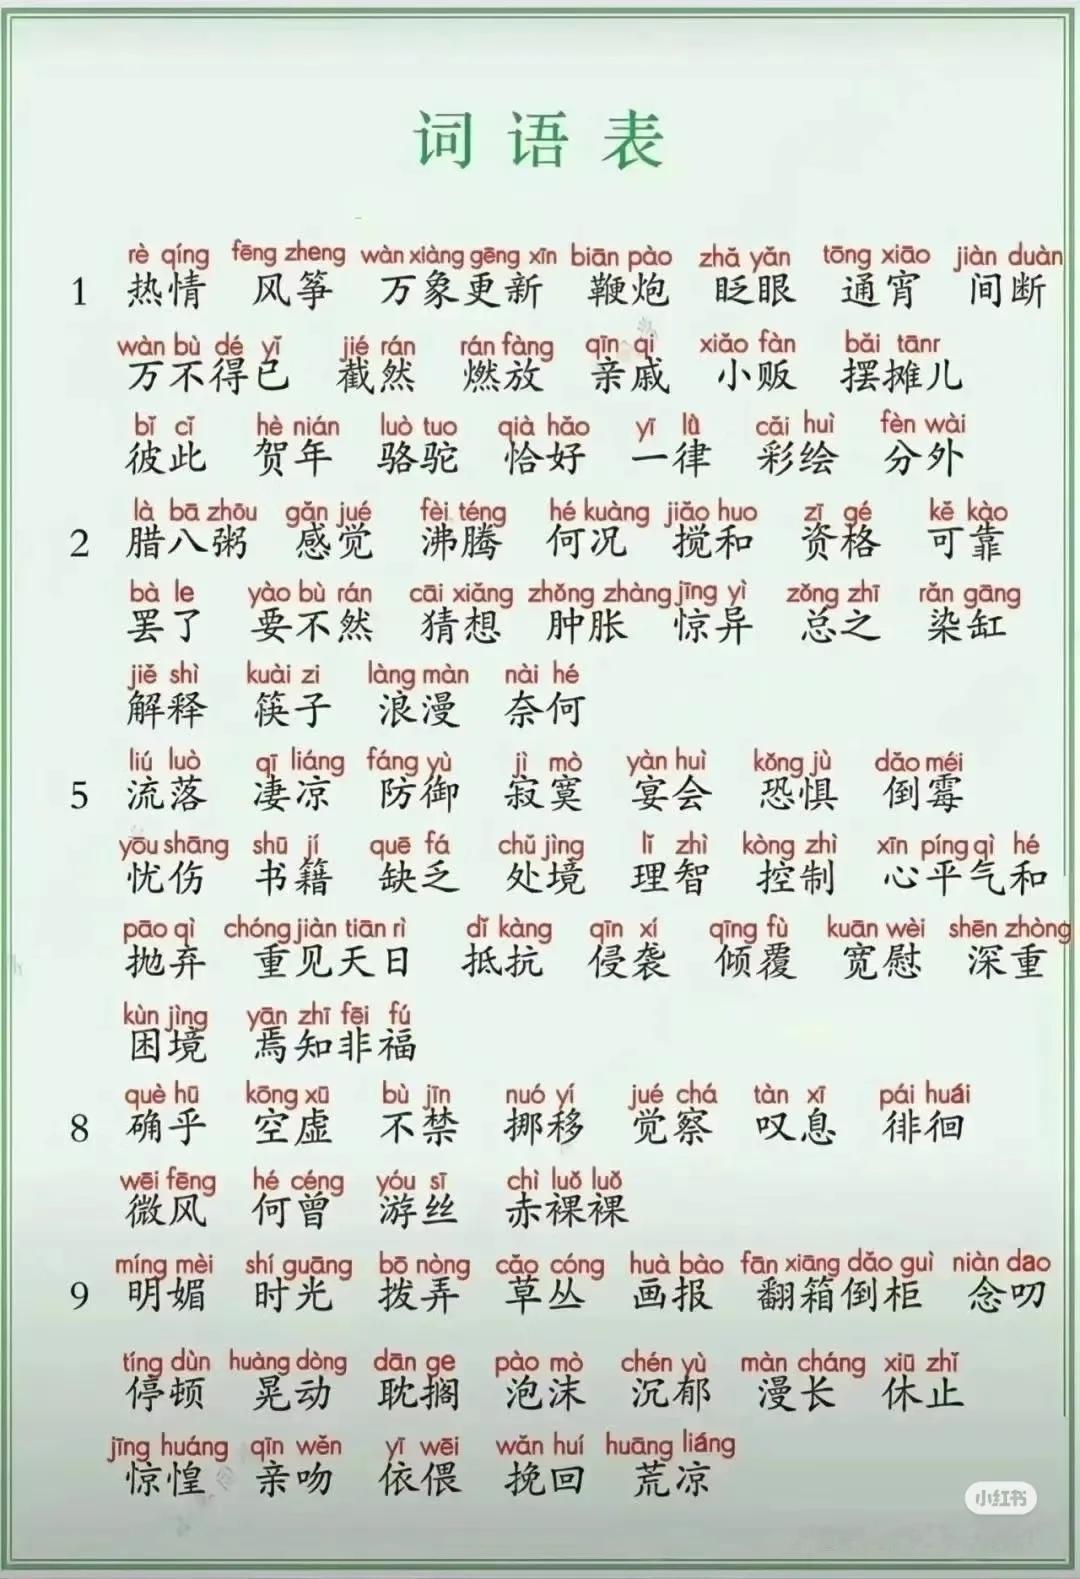 词语表
rè qíng fēng zheng wàn xiàng gēng xīn biān pào zhǎ yǎn tōng xiāo jiàn duàn
1 热情 风筝 万象更新 鞭炮 眨眼 通宵 间断
wàn bù dé yǐ jié rán rán fàng qīn qi xiǎo fàn bǎi tānr
万不得已 截然 燃放 亲戚 小贩 摆摊儿
bǐ cǐ hè nián luò tuo qià hǎo yī lǜ cǎi huì fèn wài
彼此 贺年 骆驼 恰好 一律 彩绘 分外
là bā zhōu gǎn jué fèi téng hé kuàng jiǎo huo zī gé kě kào
2 腊八粥 感觉 沸腾 何况 搅和 资格 可靠
bà le yào bù rán cāi xiǎng zhǒng zhàng jīng yì zǒng zhī rǎn gāng
罢了 要不然 猜想 肿胀 惊异 总之 染缸
jiě shì kuài zi làng màn nài hé
解释 筷子 浪漫 奈何
liú luò qī liáng fáng yù jì mò yàn huì kǒng jù dǎo méi
5 流落 凄凉 防御 寂寞 宴会 恐惧 倒霉
yōu shāng shū jí quē fá chǔ jìng lǐ zhì kòng zhì xīn píng qì hé
忧伤 书籍 缺乏 处境 理智 控制 心平气和
pāo qì chóng jiàn tiān rì dǐ kàng qīn xí qīng fù kuān wèi shēn zhòng
抛弃 重见天日 抵抗 侵袭 倾覆 宽慰 深重
kùn jìng yān zhī fēi fú
困境 焉知非福
què hū kōng xū bù jīn nuó yí jué chá tàn xī pái huái
8 确乎 空虚 不禁 挪移 觉察 叹息 徘徊
wēi fēng hé céng yóu sī chì luǒ luǒ
微风 何曾 游丝 赤裸裸
míng mèi shí guāng bō nòng cǎo cóng huà bào fān xiāng dǎo guì niàn dao
9 明媚 时光 拨弄 草丛 画报 翻箱倒柜 念叨
tíng dùn huàng dòng dān ge pào mò chén yù màn cháng xiū zhǐ
停顿 晃动 耽搁 泡沫 沉郁 漫长 休止
jīng huáng qīn wěn yī wēi wǎn huí huāng liáng
惊惶 亲吻 依偎 挽回 荒凉
小红书